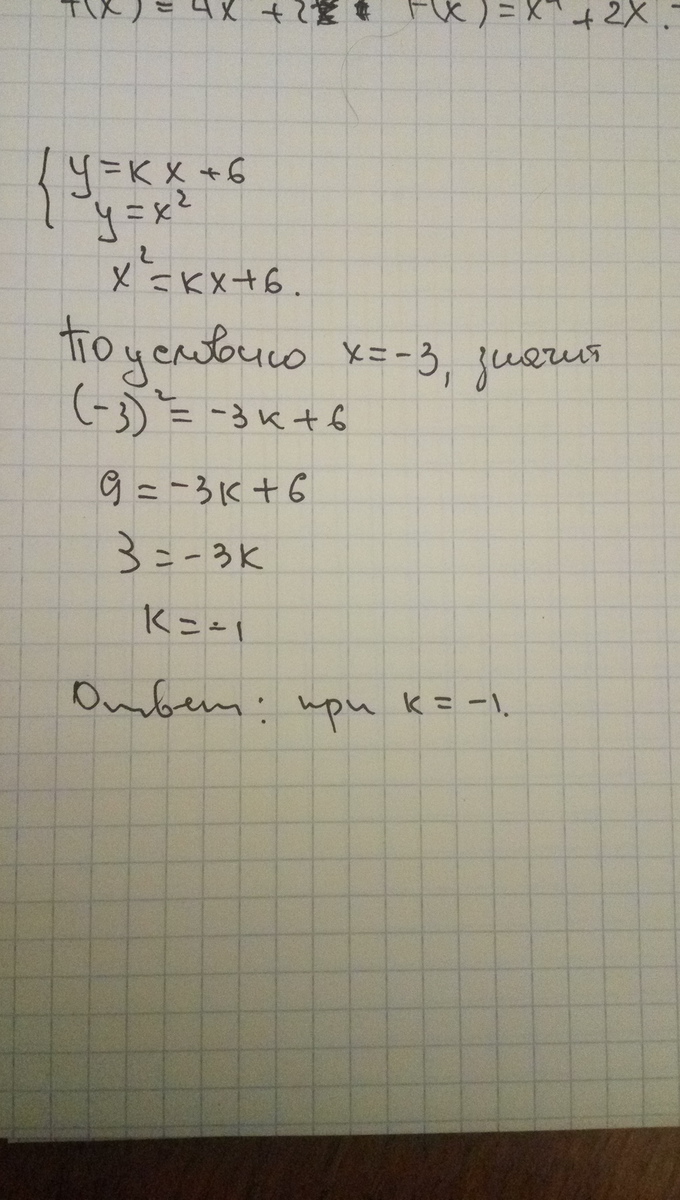 f(x) = 4x + 2 F(x) = x⁴ + 2x.
{ y = кx + 6
y = x²
x² = кx + 6.
По условию x = -3, значит
(-3)² = -3к + 6
9 = -3к + 6
3 = -3к
к = -1
Ответ: при к = -1.